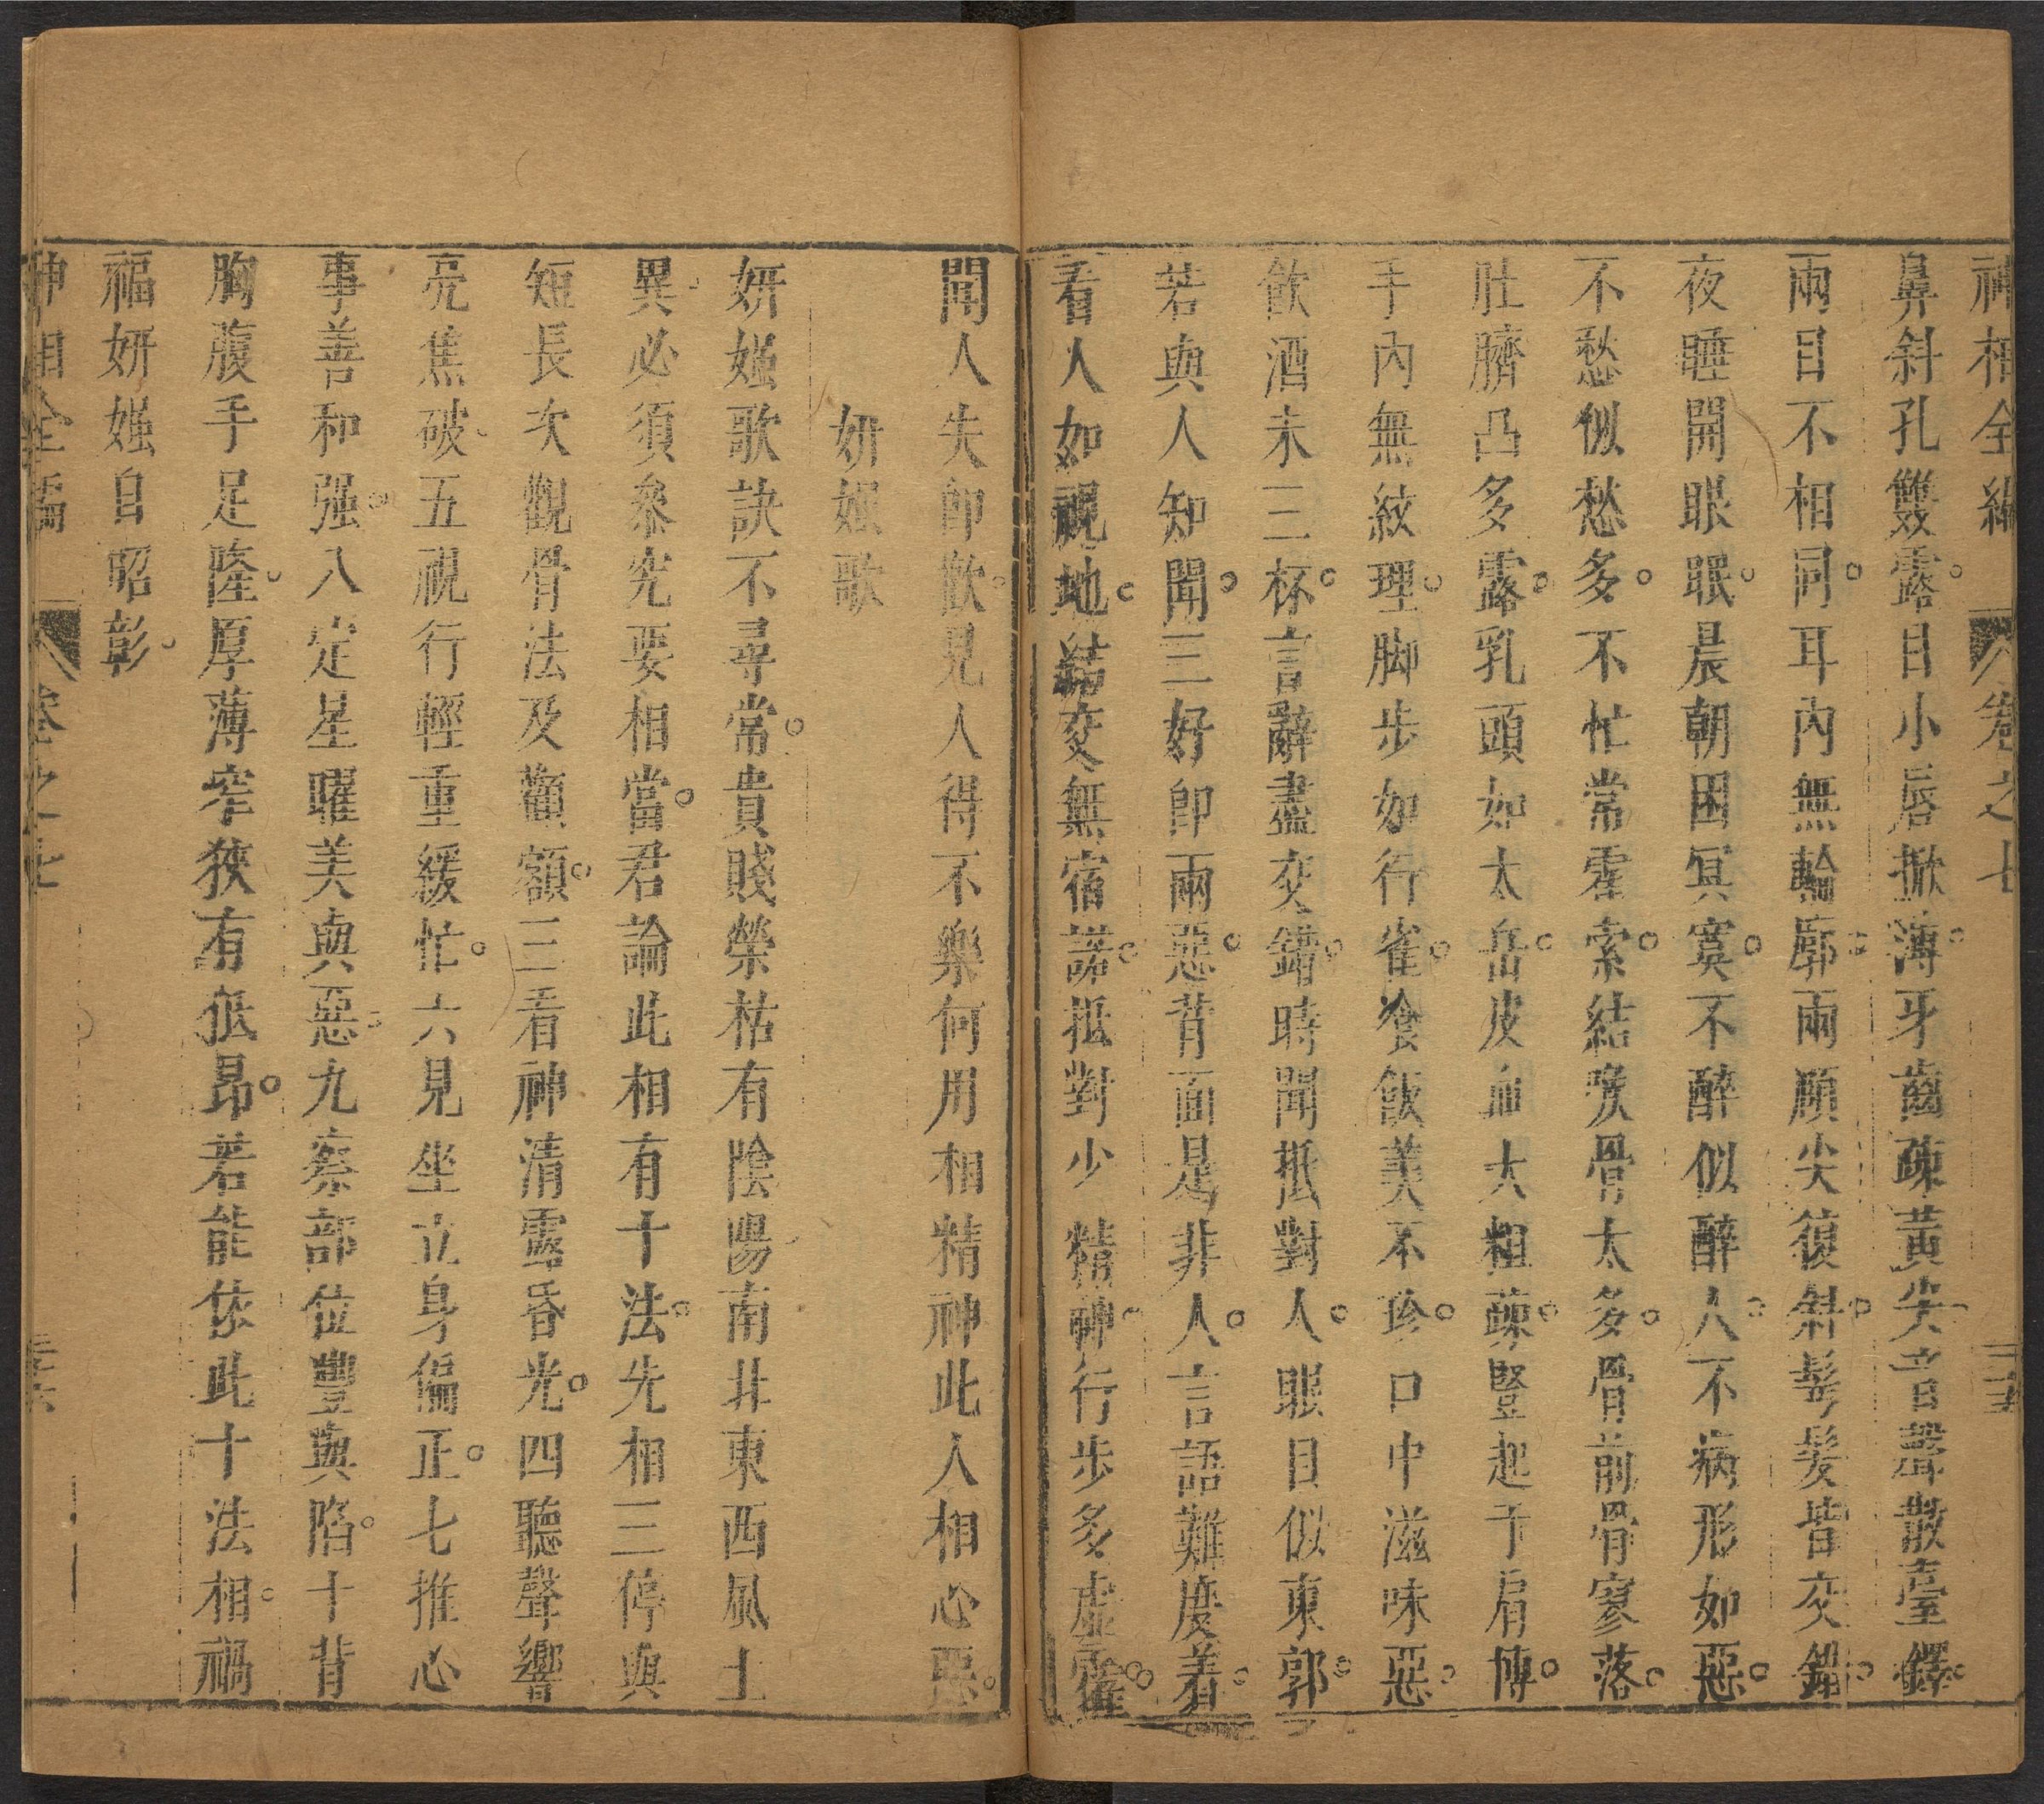 神相全編 卷之七 三五
鼻斜孔雙露。目小唇掀薄。牙齒疎黃尖。音聲散臺鐸。
兩目不相同。耳內無輪廓。兩顧尖復斜。髩髮皆交錯。
夜睡開眼眠。晨朝困冥寞。不醉似醉人。不病形如惡。
不愁似愁多。不忙常霍索。結喉骨太多。骨前骨寥落。
肚臍凸多露。乳頭如太岳。皮血大粗疎。豎起于肩博。
手內無紋理。脚步如行雀。飡飯美不珍。口中滋味惡。
飲酒未三杯。言辭盡交錯。時聞抵對人。眼目似東郭。
若與人知聞。三好卽兩惡。背面是非人。言語難度着。
看人如視地。結交無宿諾。抵對少精神。行步多虛霍。
聞人失卽歡。見人得不樂。何用相精神。此人相心惡。
妍媸歌
妍媸歌訣不尋常。貴賤榮枯有陰陽。南北東西風土
異。必須叅究要相當。君論此相有十法。先相三停與
短長。次觀骨法及顴額。三看神清露昏光。四聽聲響
亮焦破。五視行輕重緩忙。六見坐立身偏正。七推心
事善和强。八定星曜美與惡。九察部位豐與陷。十背
胸腹手足隆。厚薄窄狹有低昂。若能依此十法相。禍
福妍媸自昭彰。
神相全編 卷之七 三六